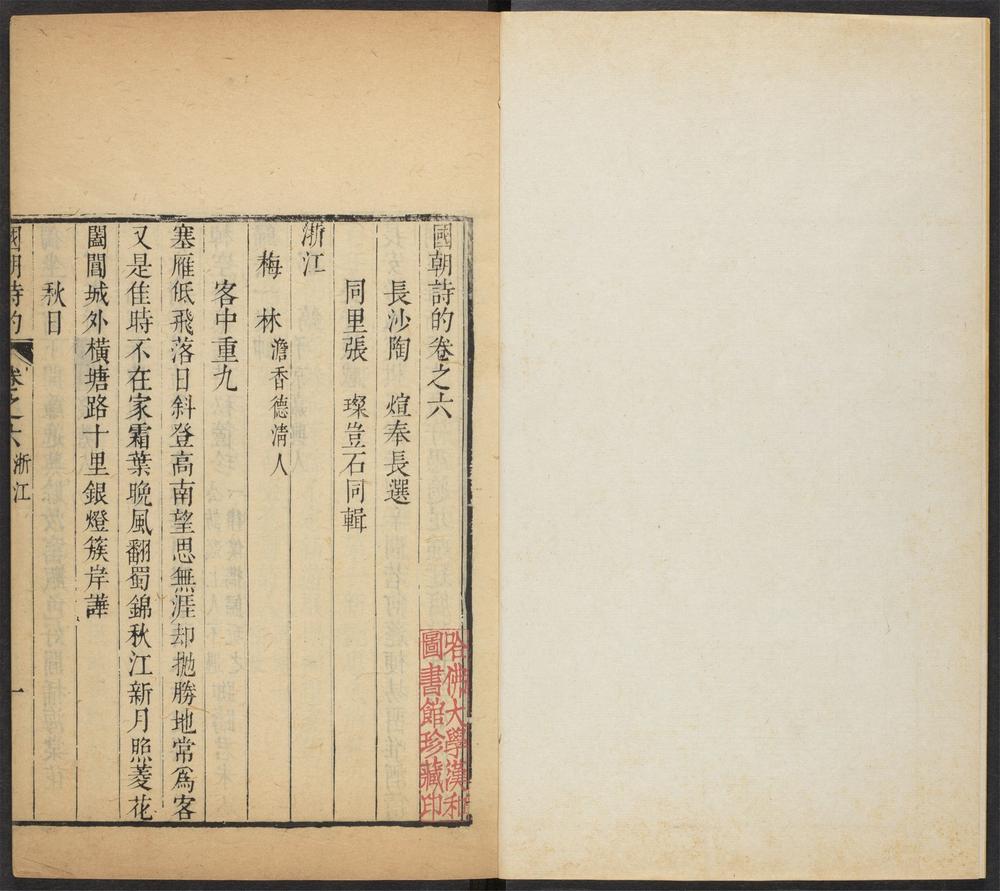 國朝詩的卷之六
長沙陶　煊奉長選
同里張　璨豈石同輯
浙江
梅　林澹香德淸人
客中重九
塞雁低飛落日斜登高南望思無涯却抛勝地常爲客
又是佳時不在家霜葉晚風翻蜀錦秋江新月照菱花
闔閭城外橫塘路十里銀燈簇岸譁
秋日
國朝詩的　卷之六　浙江　一
哈佛大學漢和
圖書館珍藏印